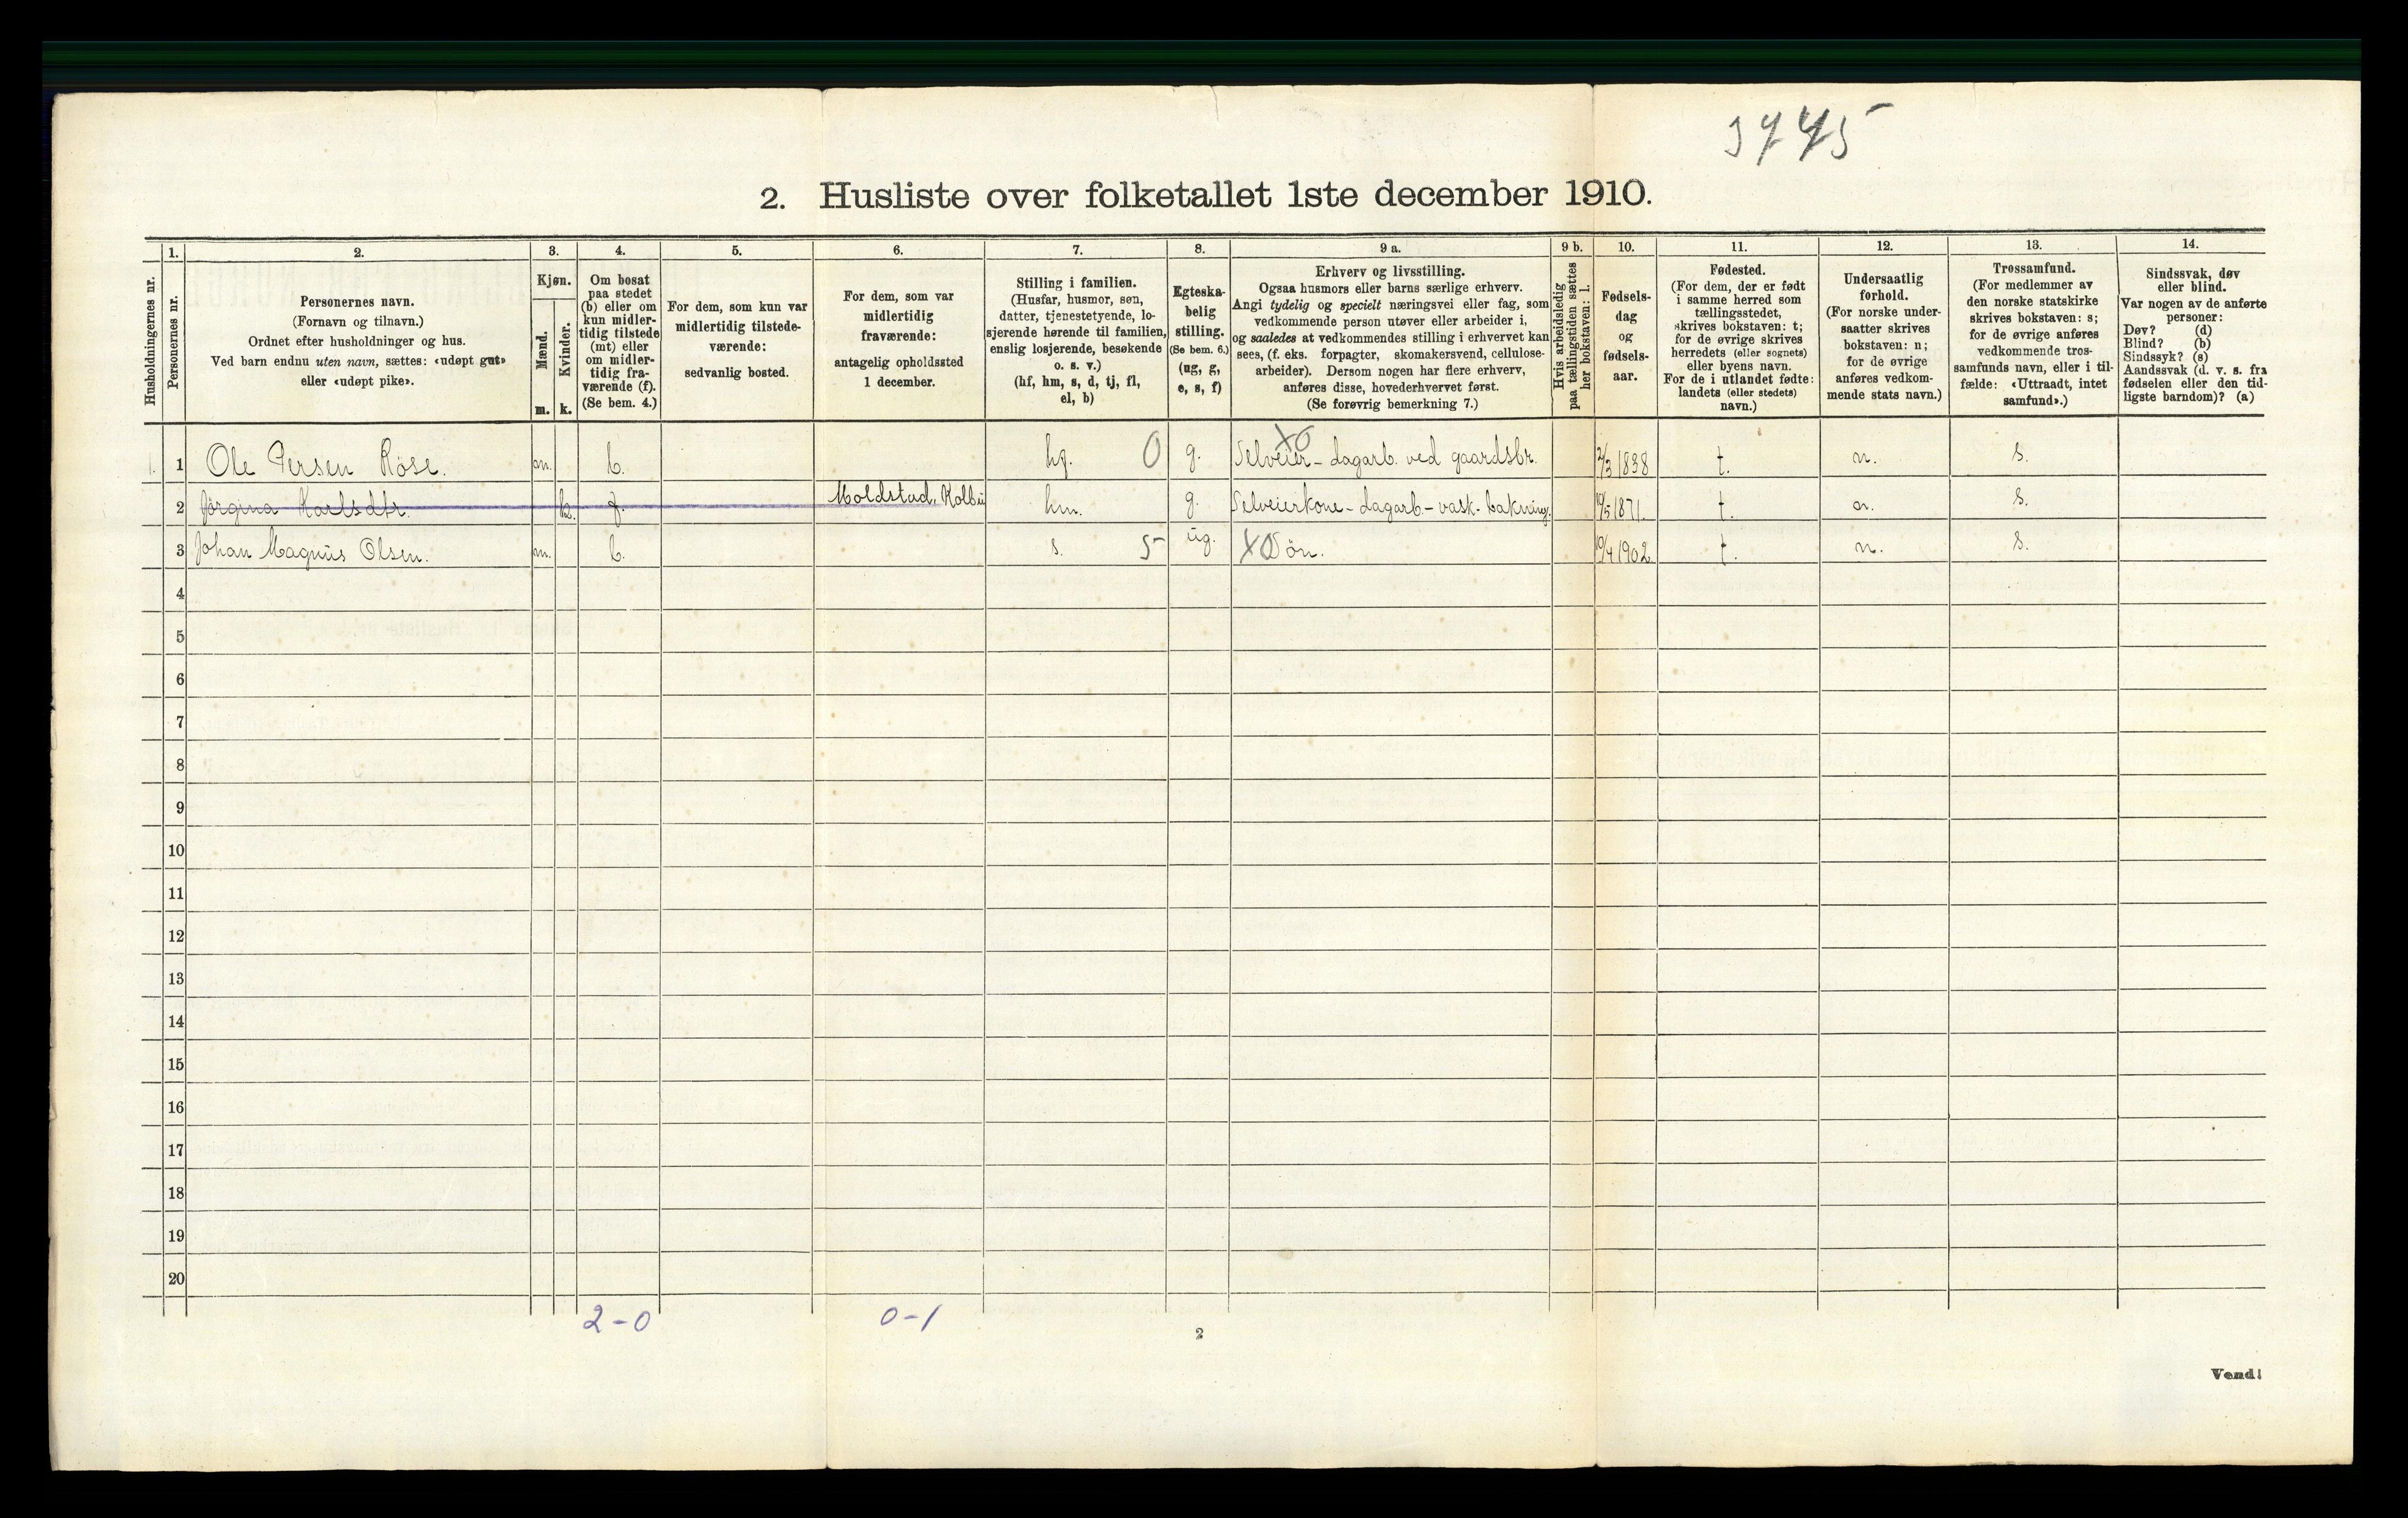 3775
2. Husliste over folketallet 1ste december 1910.
Husholdningernes nr.
1.
Personernes nr.
2.
Personernes navn.
(Fornavn og tilnavn.)
Ordnet efter husholdninger og hus.
Ved barn endnu uten navn, sættes: «udøpt gut»
eller «udøpt pike».
3.
Kjøn.
Mænd.
Kvinder.
m. k.
4.
Om bosat
paa stedet
(b) eller om
kun midler-
tidig tilstede
(mt) eller
om midler-
tidig fra-
værende (f).
(Se bem. 4.)
5.
For dem, som kun var
midlertidig tilstede-
værende:
sedvanlig bosted.
6.
For dem, som var
midlertidig
fraværende:
antagelig opholdssted
1 december.
7.
Stilling i familien.
(Husfar, husmor, søn,
datter, tjenestetyende, lo-
sjerende hørende til familien,
enslig losjerende, besøkende
o. s. v.)
(hf, hm, s, d, tj, fl,
el, b)
8.
Egteska-
belig
stilling.
(Se bem. 6.)
(ug, g,
e, s, f)
9 a.
Erhverv og livsstilling.
Ogsaa husmors eller barns særlige erhverv.
Angi tydelig og specielt næringsvei eller fag, som
vedkommende person utøver eller arbeider i,
og saaledes at vedkommendes stilling i erhvervet kan
sees, (f. eks. forpagter, skomakersvend, cellulose-
arbeider). Dersom nogen har flere erhverv,
anføres disse, hovederhvervet først.
(Se forøvrig bemerkning 7.)
9 b.
Hvis arbeidsledig
paa tællingstiden sættes
her bokstaven: l.
10.
Fødsels-
dag
og
fødsels-
aar.
11.
Fødested.
(For dem, der er født
i samme herred som
tællingsstedet,
skrives bokstaven: t;
for de øvrige skrives
herredets (eller sognets)
eller byens navn.
For de i utlandet fødte:
landets (eller stedets)
navn.)
12.
Undersaatlig
forhold.
(For norske under-
saatter skrives
bokstaven: n;
for de øvrige
anføres vedkom-
mende stats navn.)
13.
Trossamfund.
(For medlemmer av
den norske statskirke
skrives bokstaven: s;
for de øvrige anføres
vedkommende tros-
samfunds navn, eller i til-
fælde: «Uttraadt, intet
samfund».)
14.
Sindssvak, døv
eller blind.
Var nogen av de anførte
personer:
Døv? (d)
Blind? (b)
Sindssyk? (s)
Aandssvak (d. v. s. fra
fødselen eller den tid-
ligste barndom)? (a)
1. 1 Ole Persen Røse. m. b. hf. 0 g. X0 Selveier - dagarb. ved gaardsbr. 2/3 1838 t. n. s.
2 Jørgina Karlsdtr. k. f. Moldstad, Kolbu hm. g. Selveierkone - dagarb. - vask. bakning. 19/5 1871. t. n. s.
3 Johan Magnus Olsen. m. b. s. 5 ug. X0 Søn. 10/4 1902. t. n. s.
4
5
6
7
8
9
10
11
12
13
14
15
16
17
18
19
20
2-0 0-1
2
Vend!